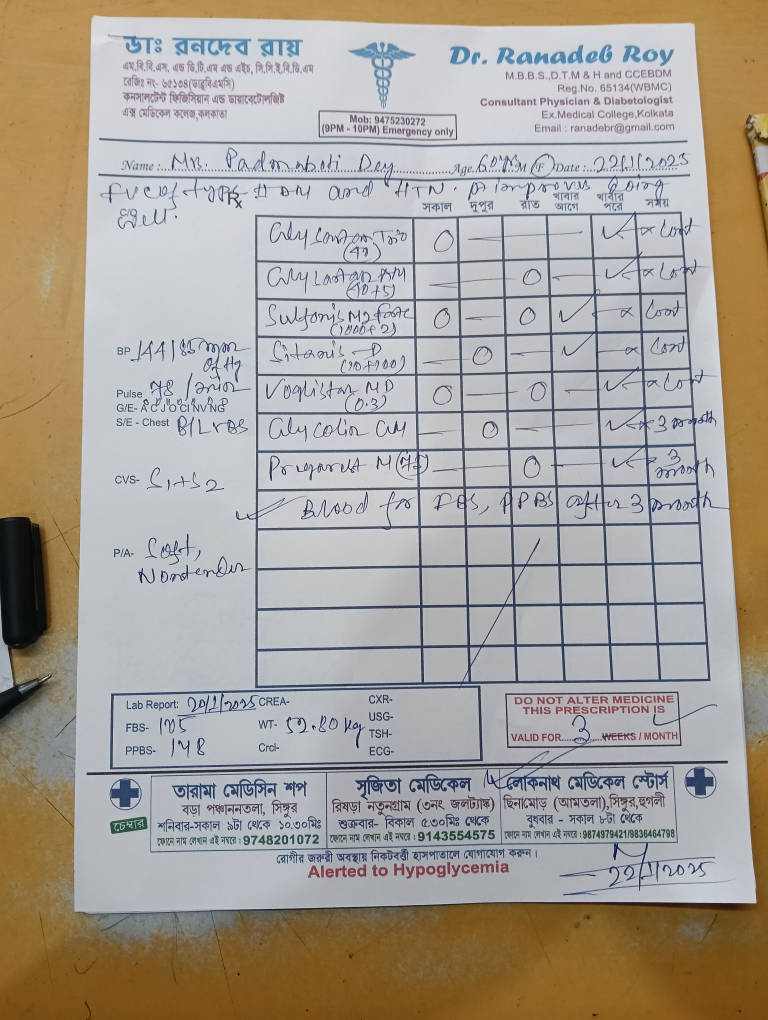 ডাঃ রনদেব রায়
এম.বি.বি.এস. এন্ড ডি.টি.এম এন্ড এইচ, সি.সি.ই.বি.ডি.এম
রেজিঃ নং- ৬৫১৩৪(ডাব্লুবিএমসি)
কনসালটেন্ট ফিজিসিয়ান এন্ড ডায়াবেটোলজিষ্ট
এক্স মেডিকেল কলেজ,কলকাতা
Mob: 9475230272
(9PM - 10PM) Emergency only
Dr. Ranadeb Roy
M.B.B.S.,D.T.M & H and CCEBDM
Reg.No. 65134(WBMC)
Consultant Physician & Diabetologist
Ex.Medical College,Kolkata
Email : ranadebr@gmail.com
Name : Padmaboti Dey Age. 60 M (F) Date : 22/1/2025
and HTN. improves going
well.
Rx
সকাল দুপুর রাত খাবার আগে খাবার পরে সময়
Trio
(40) O — — — ✓ Cont
(40+5) — — O — ✓ Cont
(1000+2) O — O ✓ Cont
D — O — ✓ Cont
Voglistar MD
(0.3) O — O — ✓ Cont
— O — — ✓ 3 month
M (75) — — O — ✓ 3 month
✓ Blood for FBS, PPBS after 3 month
BP 144/85 mm of Hg
Pulse 78 /min
G/E- A C J O Cl NV NG
S/E - Chest B/L VBS
CVS- S1+S2
P/A- Soft,
Nontender
Lab Report: 20/1/2025 CREA- CXR-
FBS- 125 WT- 52.80 kg USG-
TSH-
PPBS- 148 Crcl- ECG-
DO NOT ALTER MEDICINE
THIS PRESCRIPTION IS
VALID FOR 3 WEEKS / MONTH
চেম্বার
তারামা মেডিসিন শপ
বড়া পঞ্চাননতলা, সিঙ্গুর
শনিবার-সকাল ৯টা থেকে ১০.৩০মিঃ
ফোনে নাম লেখান এই নম্বরে : 9748201072
সৃজিতা মেডিকেল
রিষড়া নতুনগ্রাম (৩নং জলট্যাঙ্ক)
শুক্রবার- বিকাল ৫.৩০মিঃ থেকে
ফোনে নাম লেখান এই নম্বরে : 9143554575
লোকনাথ মেডিকেল স্টোর্স
ছিনামোড় (আমতলা),সিঙ্গুর,হুগলী
বুধবার - সকাল ৮টা থেকে
ফোনে নাম লেখান এই নম্বরে : 9874979421/9836464798
রোগীর জরুরী অবস্থায় নিকটবর্ত্তী হাসপাতালে যোগাযোগ করুন।
Alerted to Hypoglycemia
22/1/2025